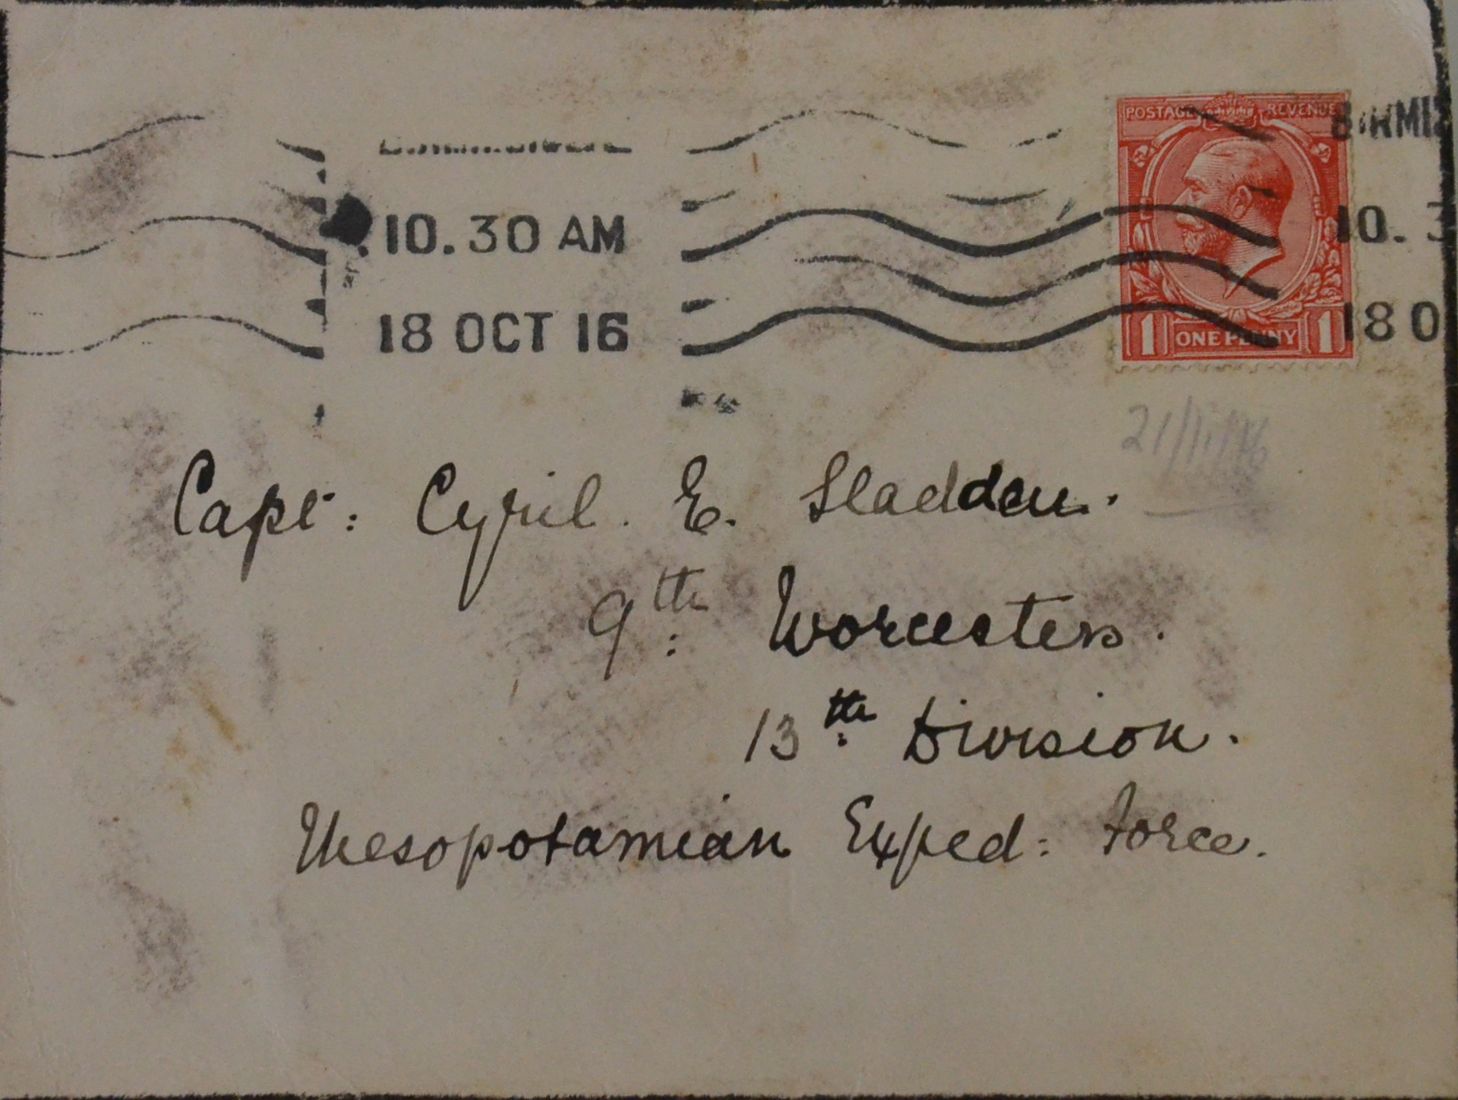 POSTAGE REVENUE
10.30 AM
10. 3
18 OCT 16
18 O
1 ONE PENNY 1
21/11/16
Capt: Cyril. E. Sladden.
9th: Worcesters.
13th: Division.
Mesopotamian Exped: Force.